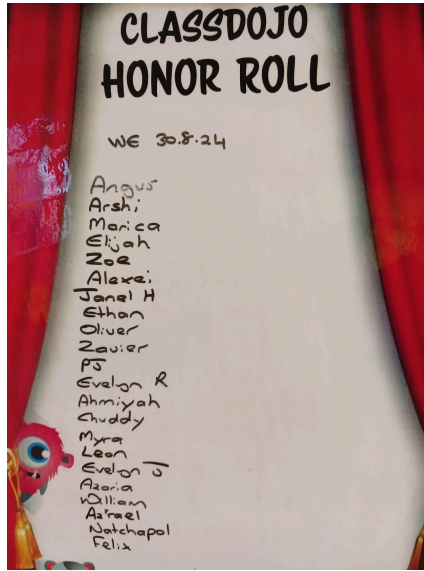 CLASSDOJO
HONOR ROLL
WE 30.8.24
Angus
Arshi
Marica
Elijah
Zoe
Alexei
Janel H
Ethan
Oliver
Zavier
PJ
Evelyn R
Ahmiyah
Chuddy
Myra
Leon
Evelyn J
Azaria
William
Az'rael
Natchapol
Felix